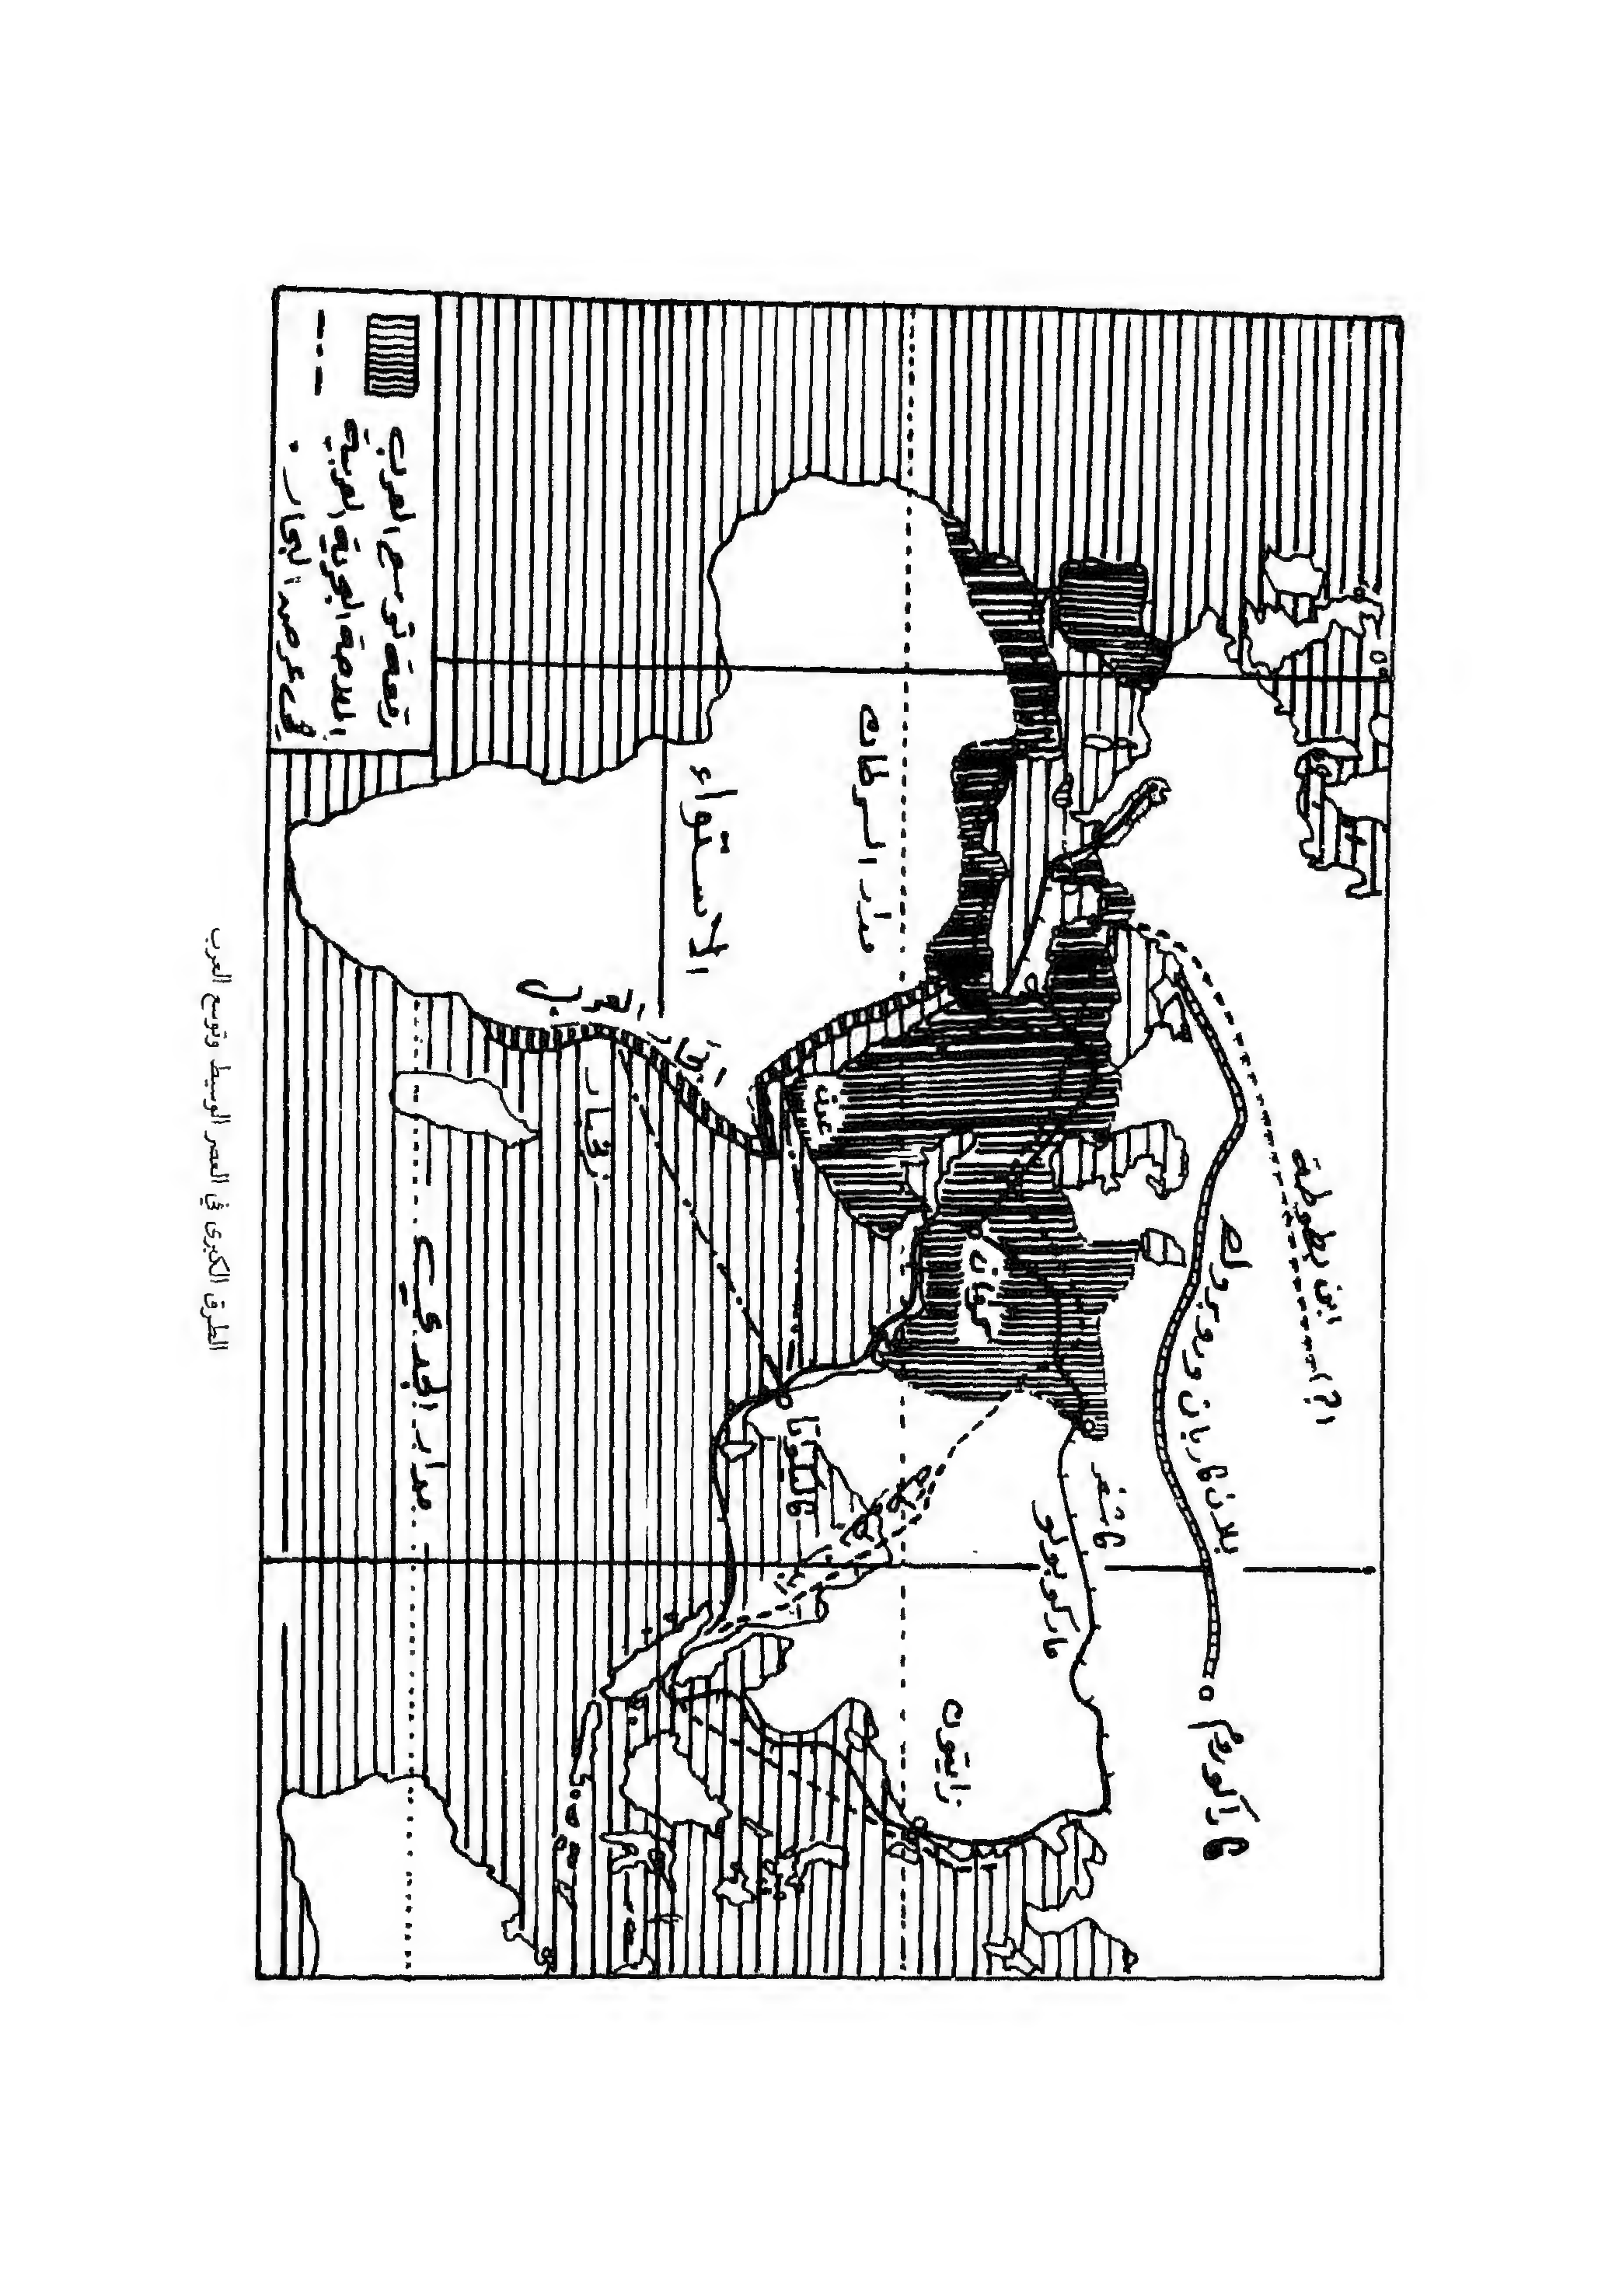 ابن بطوطة
بلان كاربان وروبروك
كاراكوروم
كاشغر
ماركوبولو
زايتون
كرمان
عدن
مدار السرطان
كالكوتا
الاستواء
العرب
زنجبار
مدار الجدي
رقعة توسع العرب
الملاحة البحرية العربية
في عرض البحار .
الطرق الكبرى في العصر الوسيط وتوسع العرب